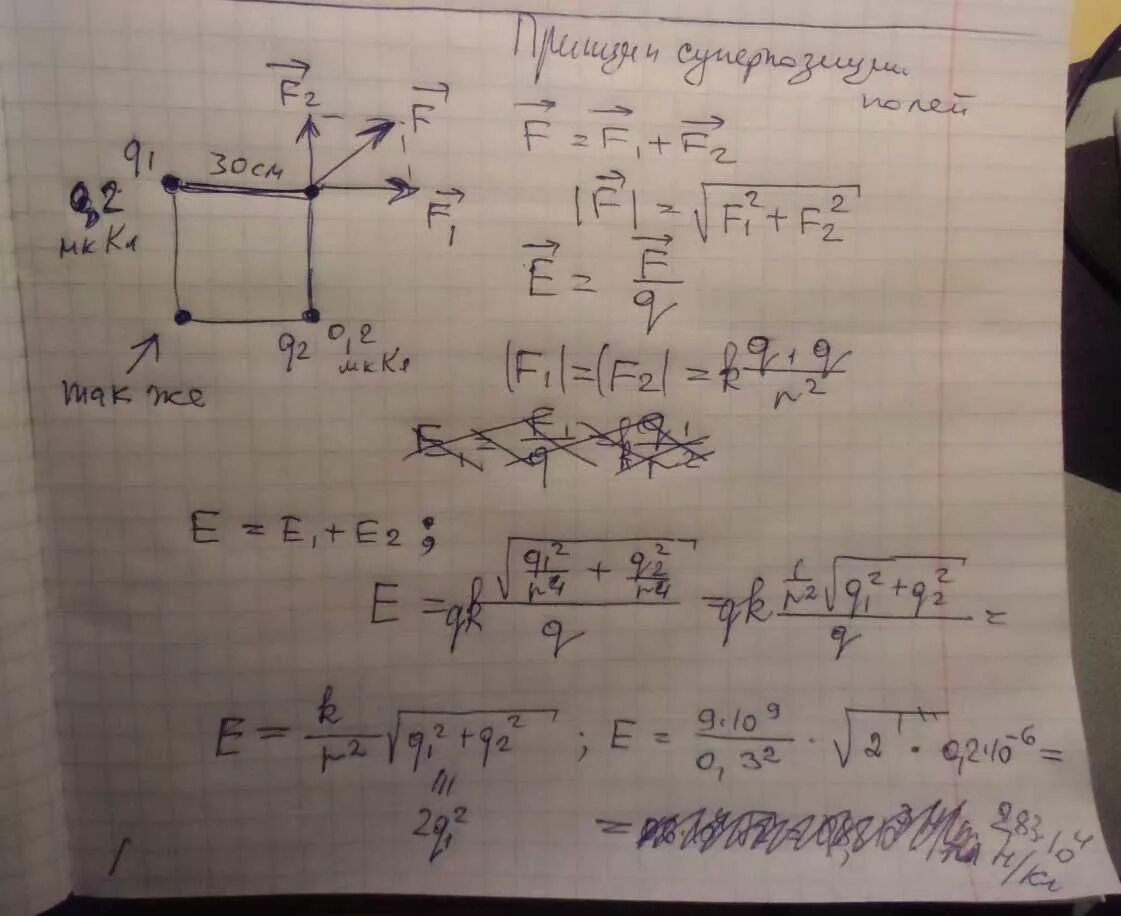 Принцип суперпозиции
полей
F₂ F
q₁ 30см
F = F₁ + F₂
0,2
мкКл
F₁
|F| = √(F₁² + F₂²)
E = F/q
q₂ 0,2
мкКл
|F₁| = |F₂| = k q₁q/r²
так же
E = E₁ + E₂ ;
E = qk √(q₁²/r⁴ + q₂²/r⁴)/q = qk (1/r² √(q₁² + q₂²))/q =
E = k/r² √(q₁² + q₂²) ; E = 9·10⁹/0,3² · √2 · 0,2·10⁻⁶ =
2q₁²
= 2,83 10⁴
Н/Кл